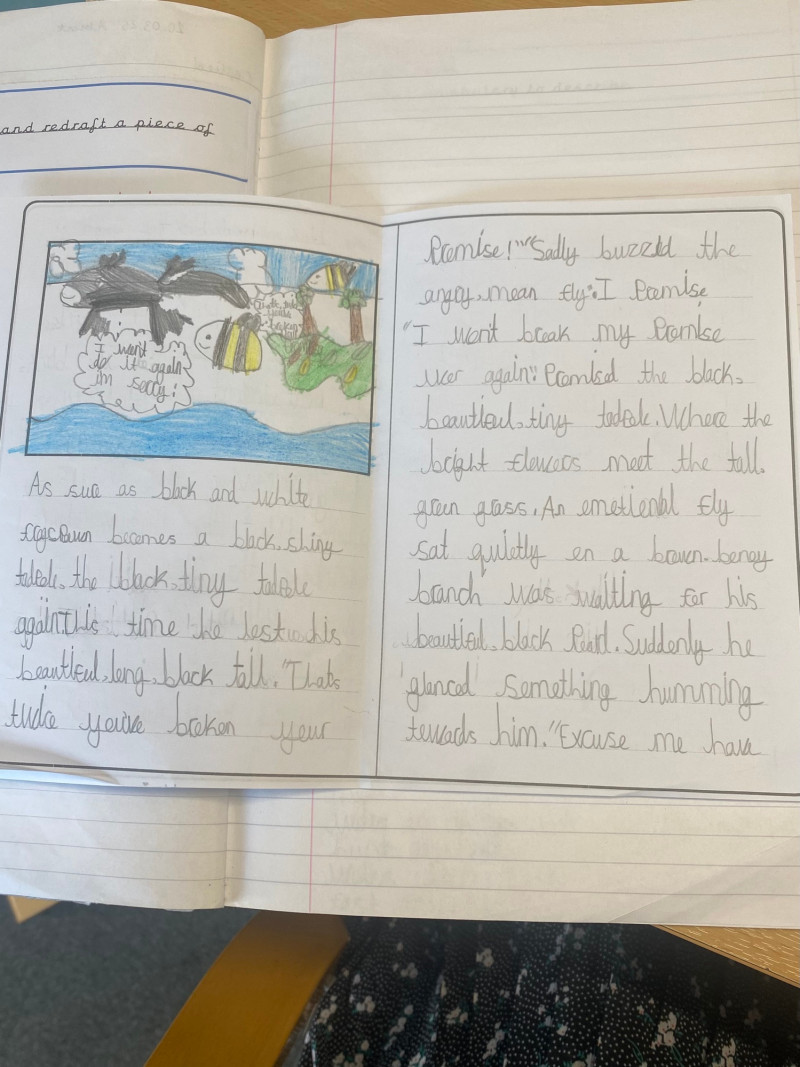 and redraft a piece of
I wont
do it again
im sorry!
As sure as black and white
frogspawn becomes a black, shiny
tadpole, the black, tiny tadpole
again This time he lost his
beautiful, long, black tail. "Thats
twice youve broken your
Promise!" Sadly buzzed the
angry, mean fly. I Promise
"I wont break my Promise
ever again" Promised the black,
beautiful, tiny tadpole. Where the
bright flowers meet the tall,
green grass, An emotional fly
sat quietly on a brown. boney
branch was waiting for his
beautiful, black Pearl. Suddenly he
glanced something humming
towards him. "Excuse me have